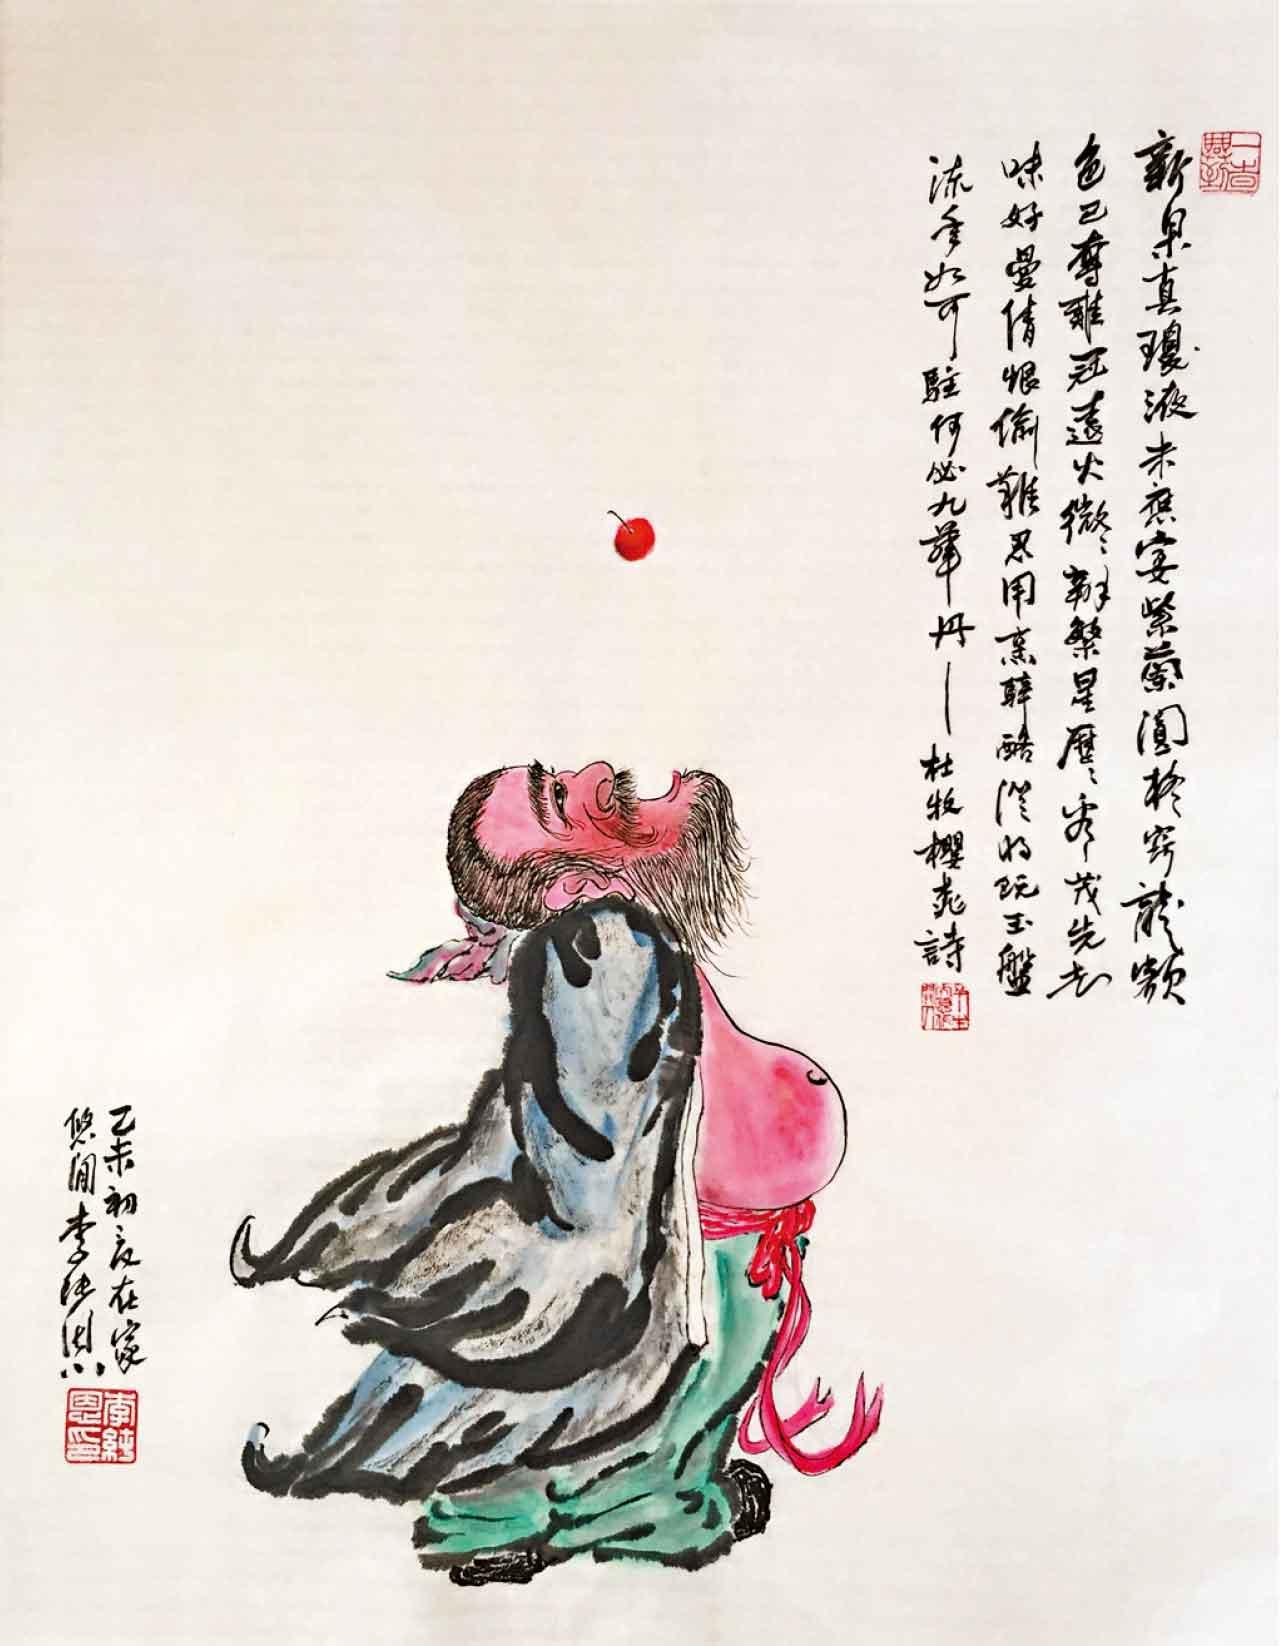 新果真瓊液未應宴紫蘭圓疑窃龍頷
色已奪雞冠遠火微々辨繁星歷々看茂先知
味好曼倩恨偷難忍用烹酥酪從將玩玉盤
流年如可駐何必九華丹——杜牧櫻桃詩
乙未初夏在家
悠閒李純恩
李純恩印